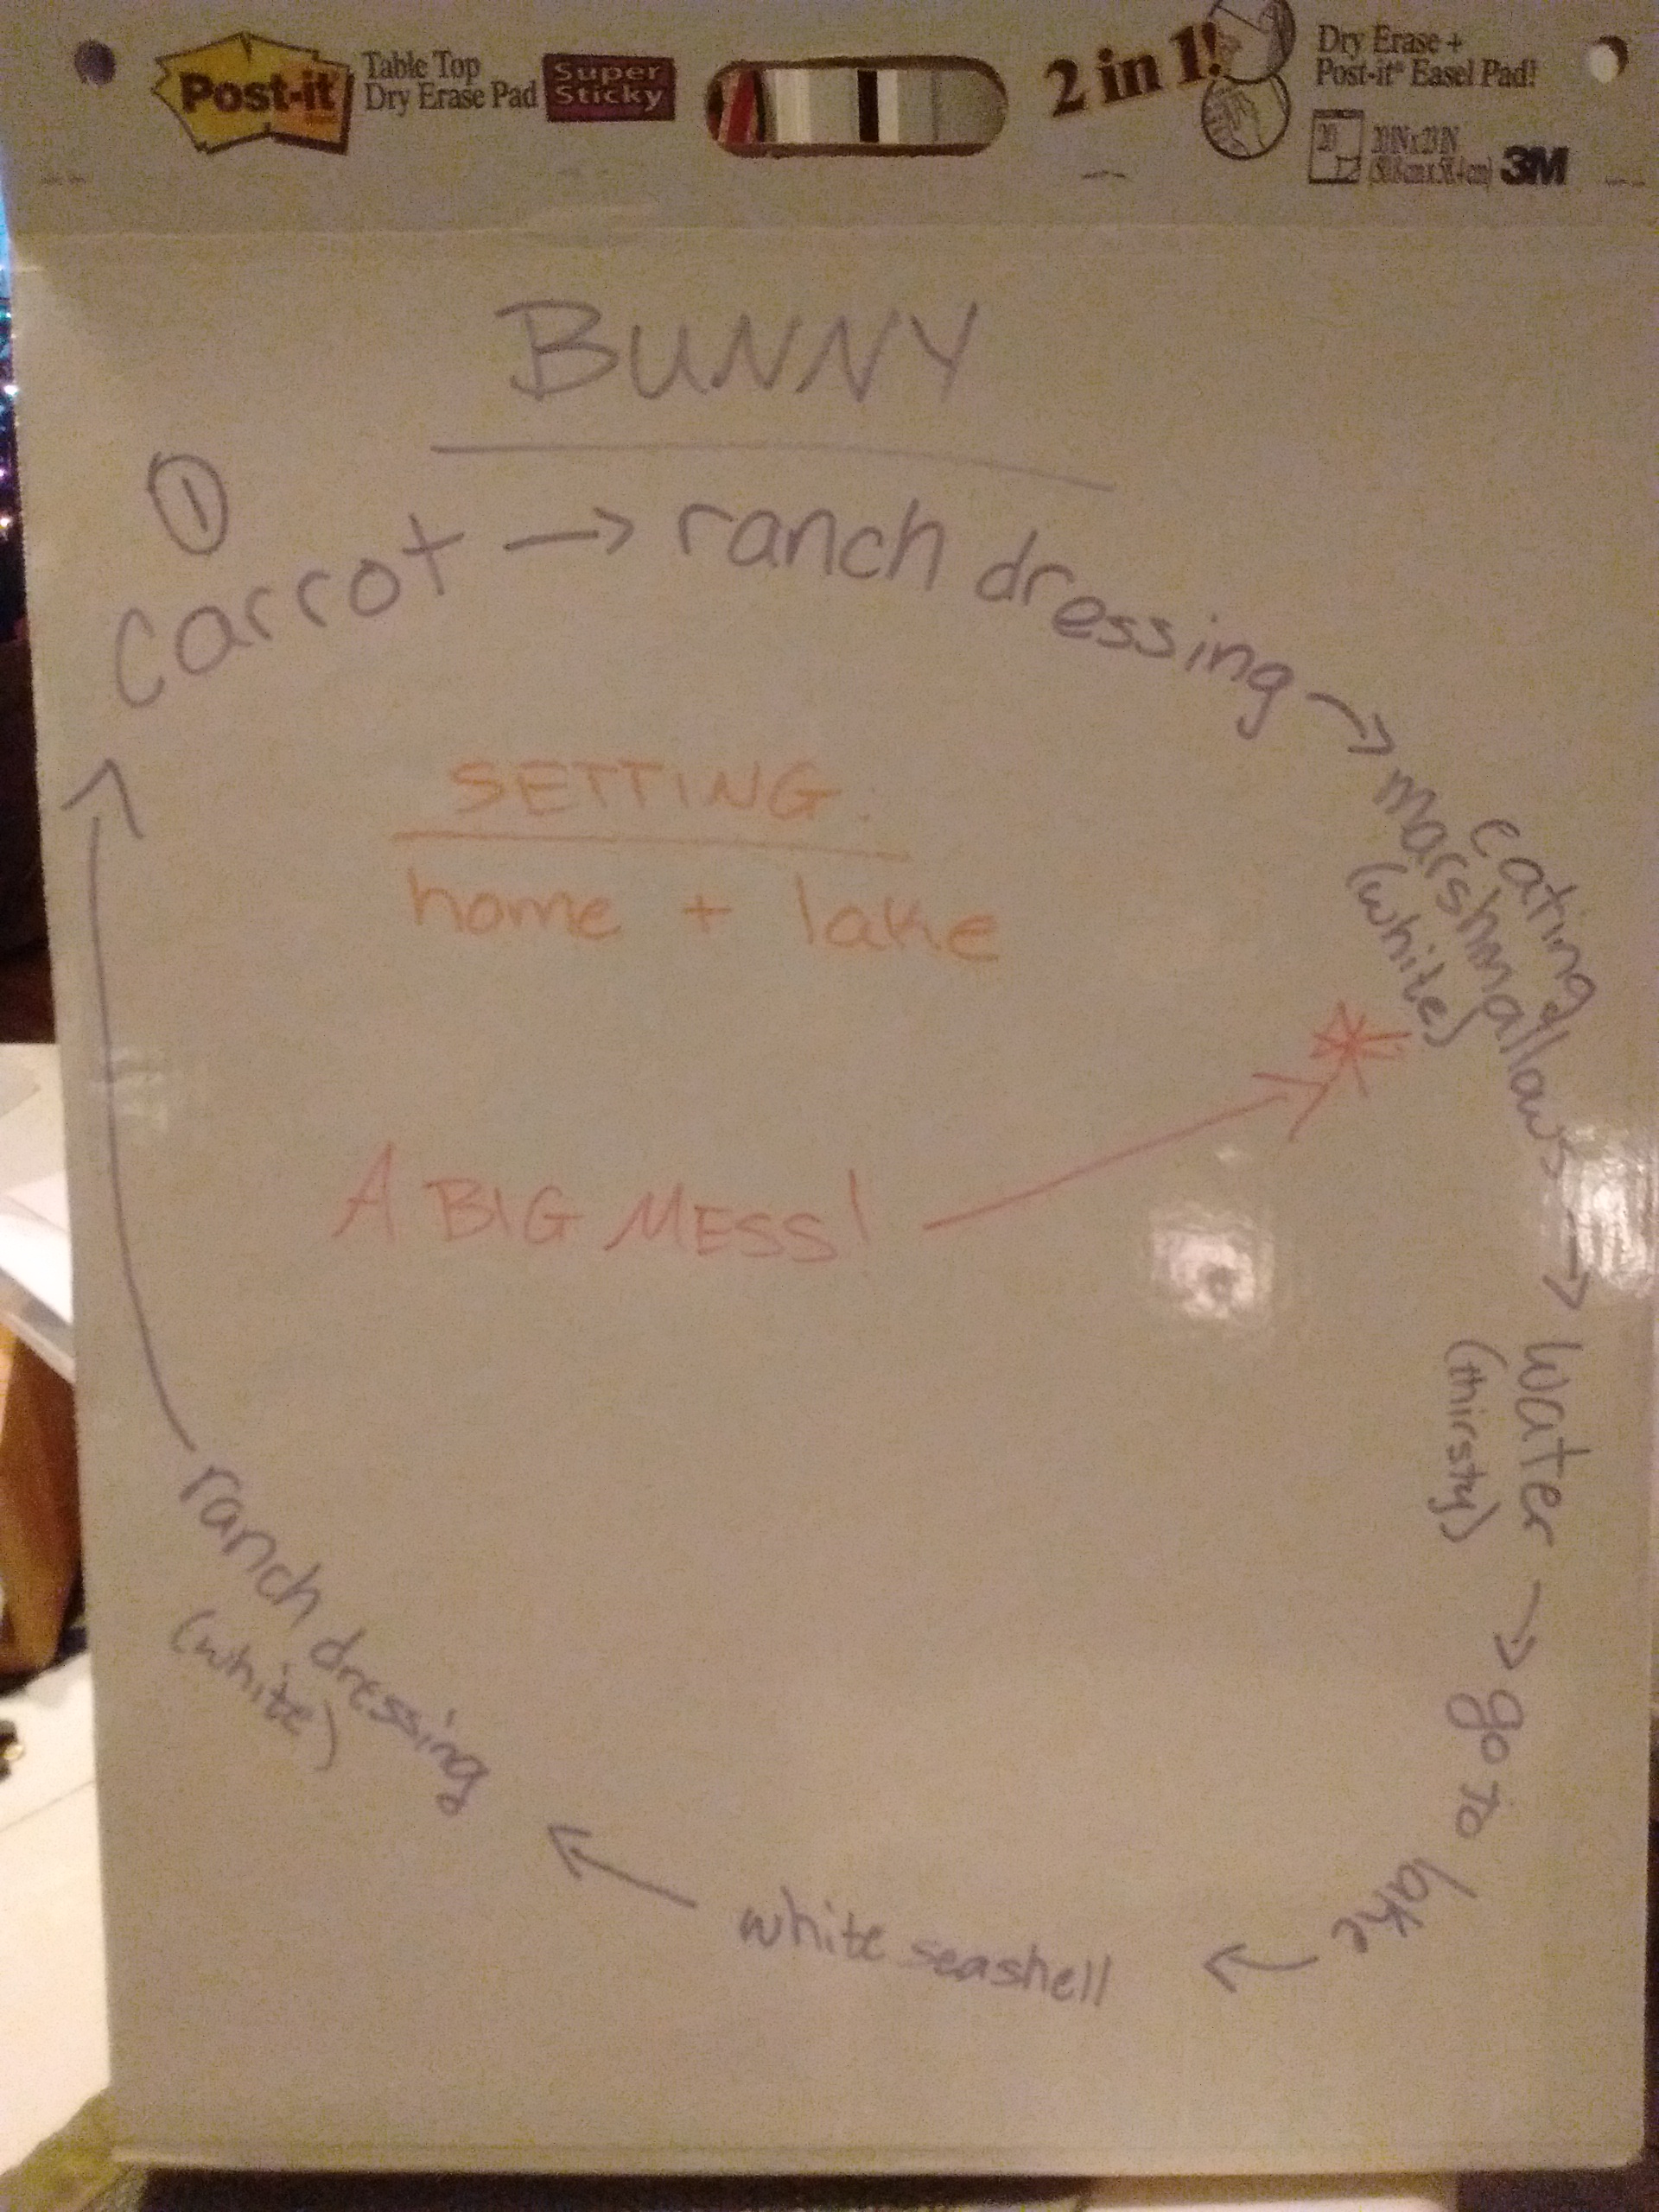 Post-it
Table Top
Dry Erase Pad
Super
Sticky
2 in 1!
Dry Erase +
Post-it® Easel Pad!
20
20 IN x 23 IN
(50.8 cm x 58.4 cm)
3M
BUNNY
1
carrot → ranch dressing →
eating
marshmallows →
(white)
SETTING:
home + lake
A BIG MESS!
water →
(thirsty)
go to lake
← white seashell
← ranch dressing
(white)